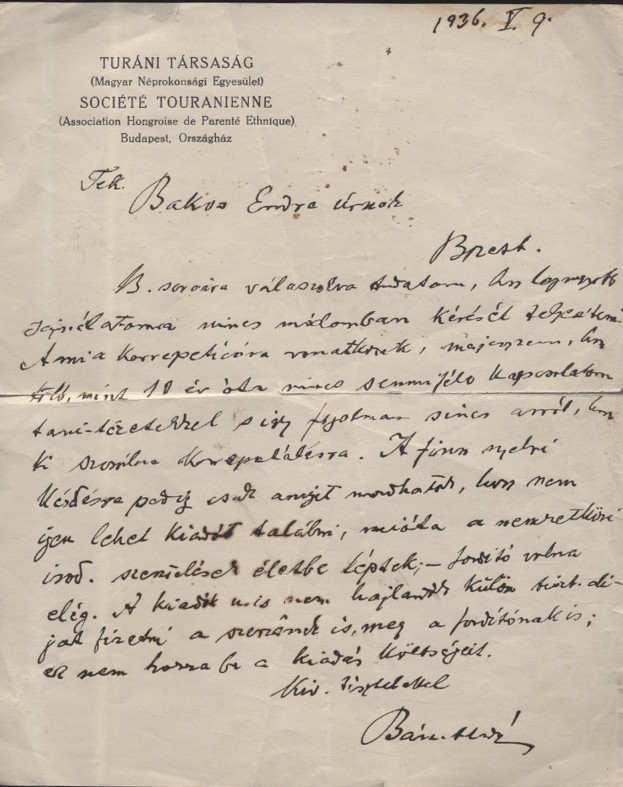 1936. V. 9.
TURÁNI TÁRSASÁG
(Magyar Néprokonsági Egyesület)
SOCIÉTÉ TOURANIENNE
(Association Hongroise de Parenté Ethnique)
Budapest, Országház
Tek.
Bakos Endre úrnak
Bpest.
B. soraira válaszolva tudatom, hogy legnagyobb
sajnálatomra nincs módomban kérését teljesíteni.
Ami a korrepetícióra vonatkozik, megjegyzem, hogy
több, mint 10 év óta nincs semmiféle kapcsolatom
tanintézetekkel s így fogalmam sincs arról, hogy
ki szorulna korrepetálásra. A finn nyelvi
kérdésre pedig csak annyit mondhatok, hogy nem
igen lehet kiadót találni, mióta a nemzetközi
irod. szerződések életbe léptek; – fordító volna
elég. A kiadók u.is nem hajlandók külön tiszt. dí-
jat fizetni a szerzőnek is, meg a fordítónak is;
ez nem hozza be a kiadás költségeit.
Kiv. tisztelettel
Bán Aladár